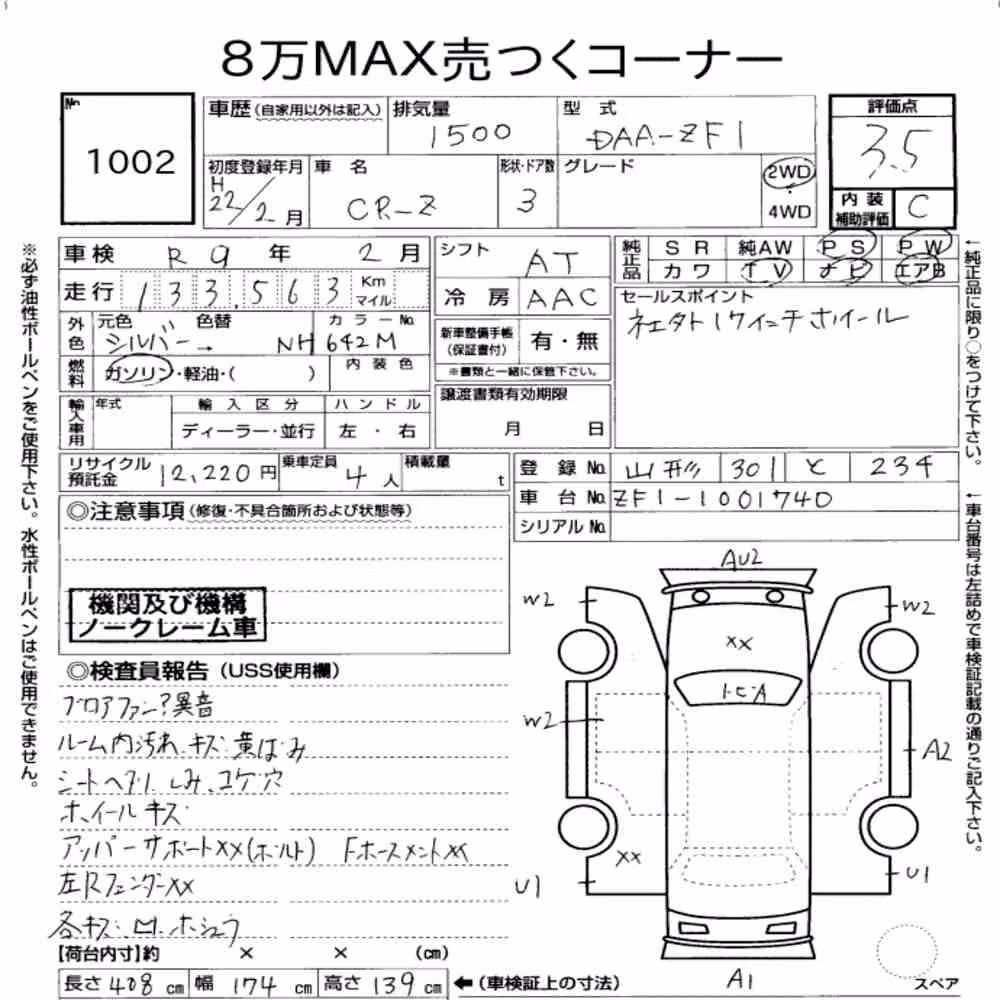 8万MAX売つくコーナー
No.
1002
車歴(自家用以外は記入)
排気量
1500
型 式
DAA-ZF1
評価点
3.5
初度登録年月
H
22/2月
車 名
CR-Z
形状・ドア数
3
グレード
2WD
・
4WD
内装
補助評価
C
車検 R9年 2月
走行 133,563 Km
マイル
シフト
AT
冷 房 AAC
純正品
SR 純AW PS PW
カワ TV ナビ エアB
セールスポイント
社外17インチホイール
外色
元色 色替 カラーNo.
シルバー→ NH642M
新車整備手帳
(保証書付)
有・無
※書類と一緒に保管下さい。
燃料
ガソリン・軽油・( )
内装色
譲渡書類有効期限
月 日
輸入車用
年式 輸入区分 ハンドル
ディーラー・並行 左・右
リサイクル
預託金
12,220円
乗車定員
4人
積載量
t
登録No. 山形 301 と 234
車台No. ZF1-1001740
シリアルNo.
◎注意事項(修復・不具合箇所および状態等)
機関及び機構
ノークレーム車
◎検査員報告(USS使用欄)
ブロアファン?異音
ルーム内汚れ、キズ、黄ばみ
シートヘタリ、しみ、コゲ穴
ホイールキズ
アッパーサポートXX(ボルト) FホースメントXX
左RフェンダーXX
各キズ、凹、ホシュウ
【荷台内寸】約 × × (cm)
長さ 408 cm 幅 174 cm 高さ 139 cm ←(車検証上の寸法)
AU2
W2
W2
XX
W2
A2
XX
U1
U1
A1
スペア
※必ず油性ボールペンをご使用下さい。水性ボールペンはご使用できません。
←純正品に限り○をつけて下さい。
←車台番号は左詰めで車検証記載の通りご記入下さい。